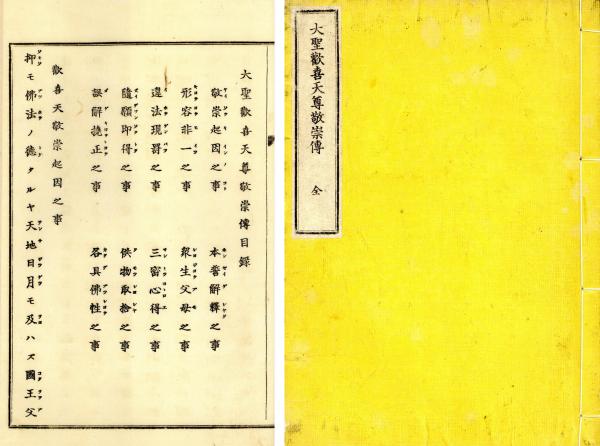 大聖歡喜天尊敬崇傳
全
大聖歡喜天尊敬崇傳目録
敬崇起因之事 本誓解釋之事
形容非一之事 衆生父母之事
違法現罸之事 三密心得之事
隨願即得之事 供物取捨之事
誤解撓正之事 各具佛性之事
歡喜天敬崇起因之事
抑モ佛法ノ德タルヤ天地日月モ及ハス國王父